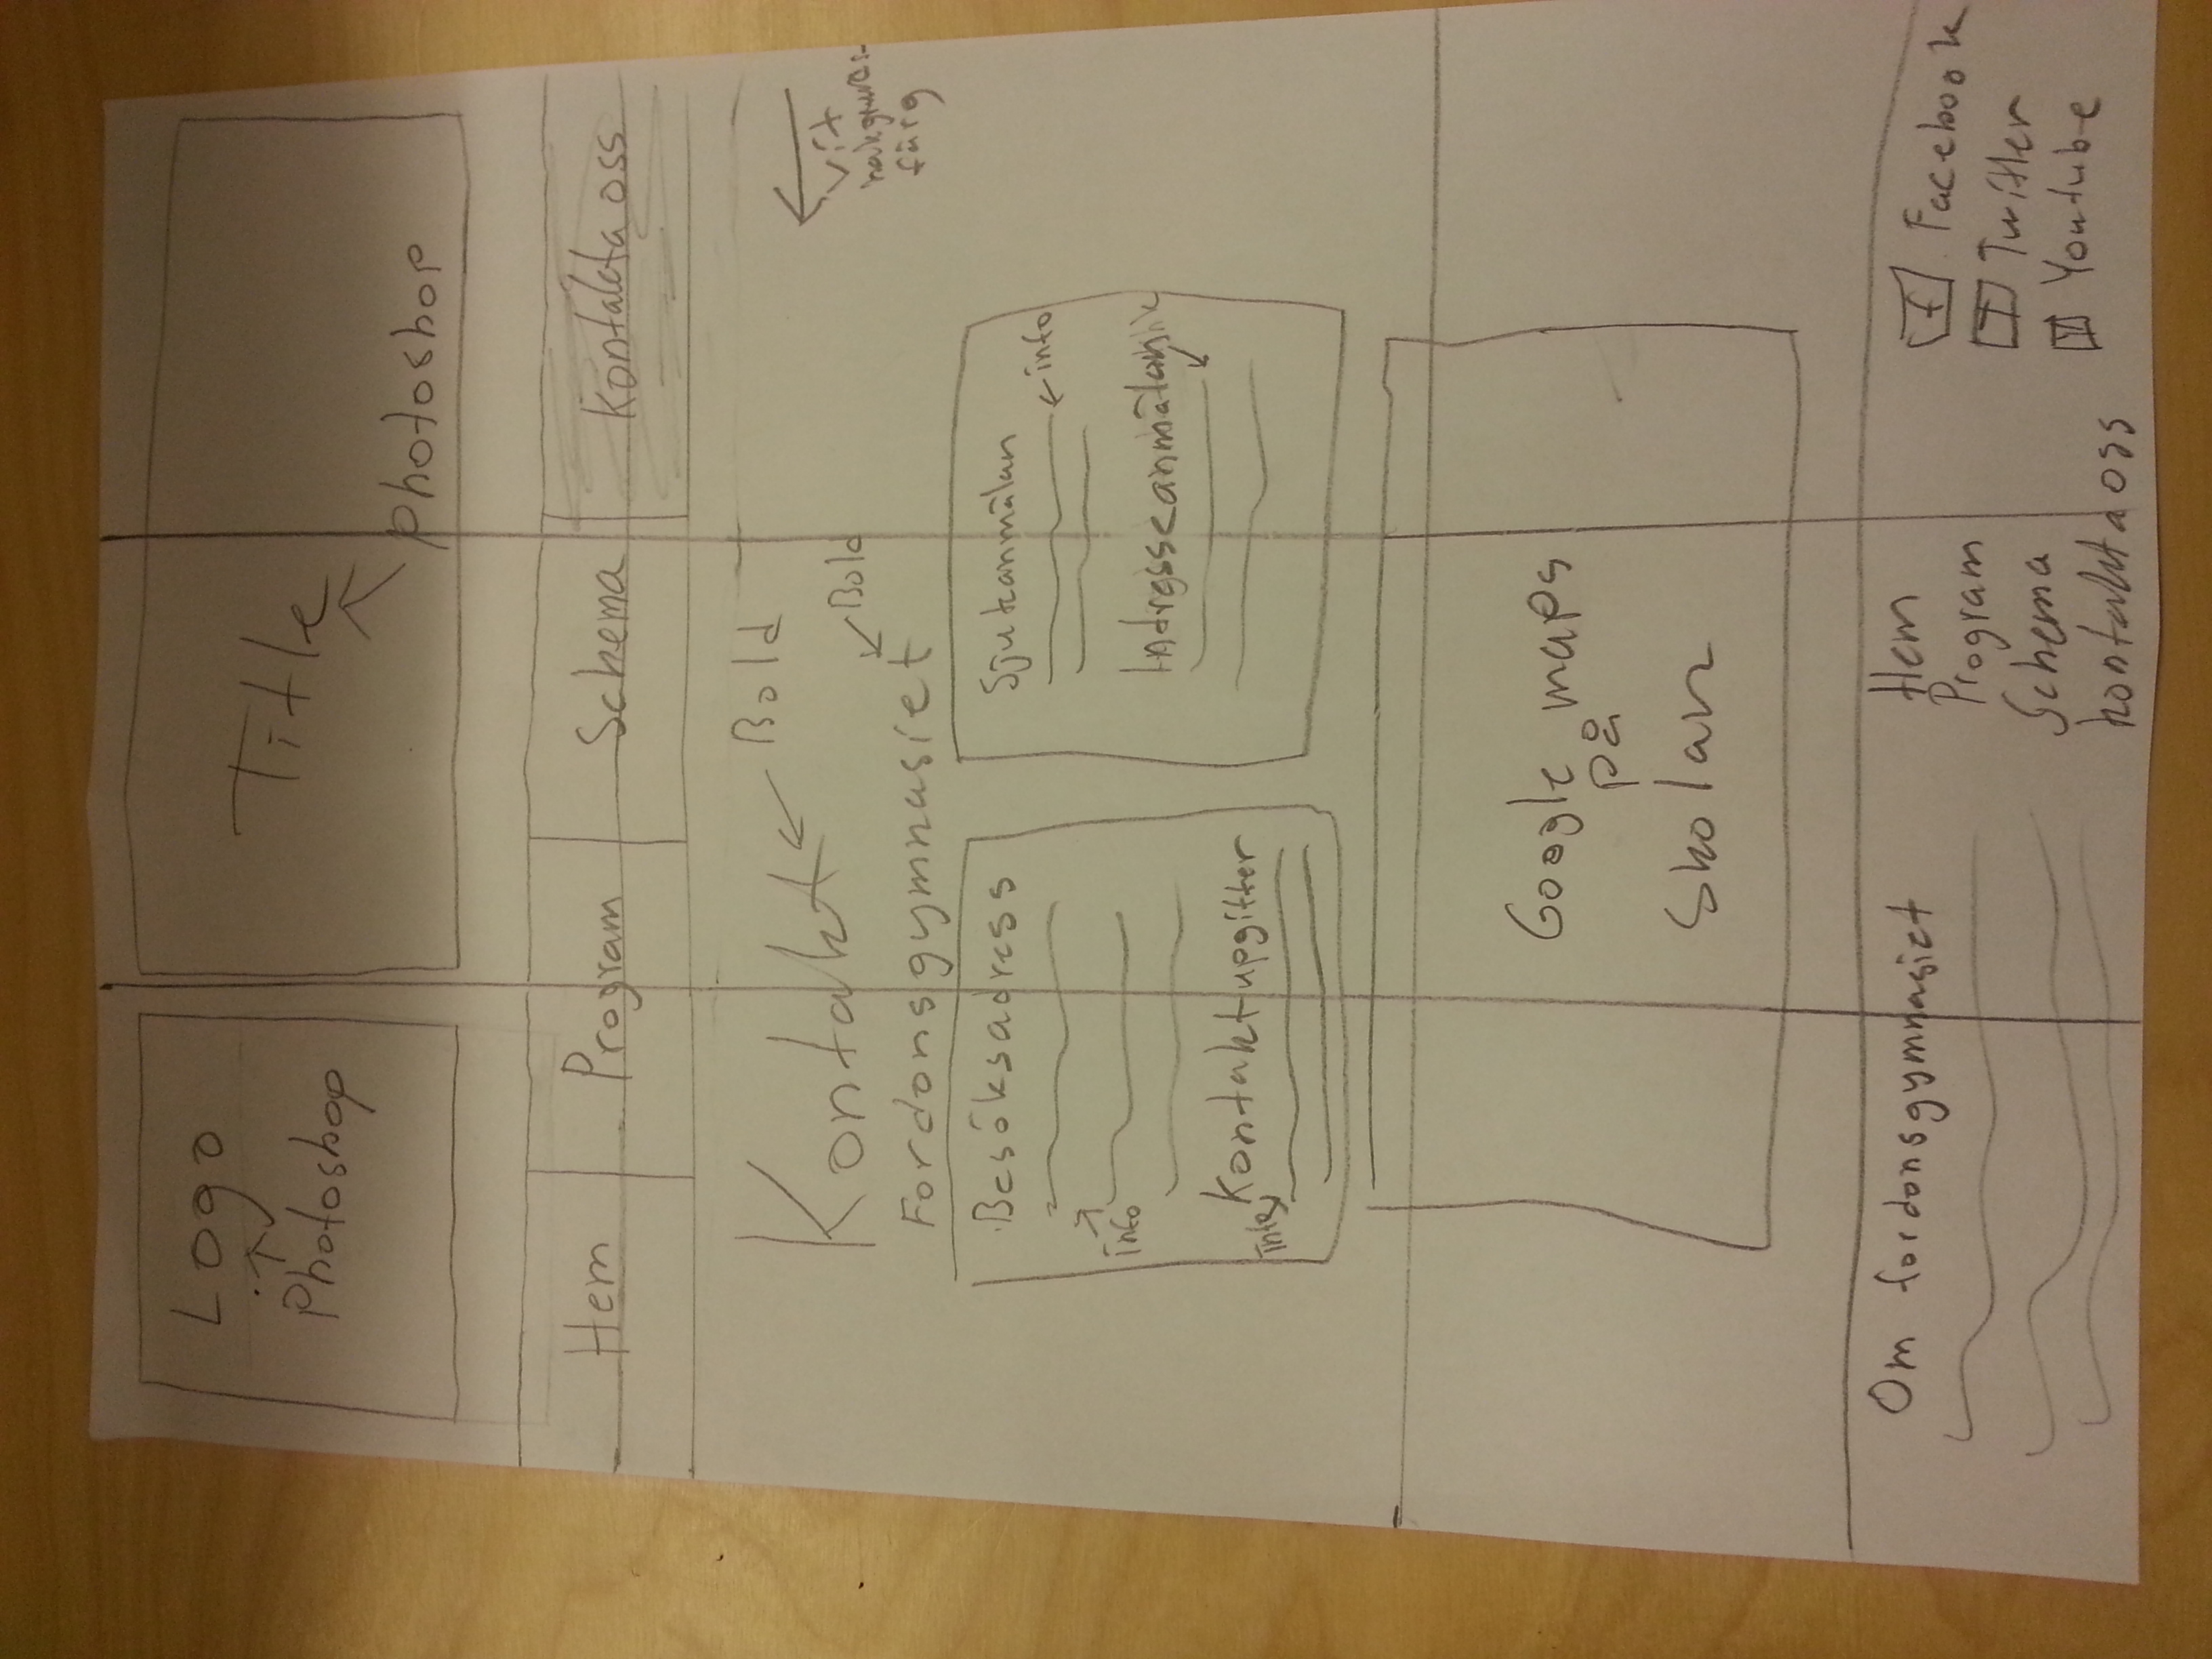 Logo
Photoshop
Title
photoshop
Hem Program Schema Kontakta oss
Kontakt Bold
Bold
Fordonsgymnasiet
vit
färg
Besöksadress
info
Kontaktupgifter
info
Sjukanmälan
info
Google maps
på
Skolan
Om fordonsgymnasiet
Hem
Program
Schema
kontakta oss
f Facebook
T Twitter
Y Youtube